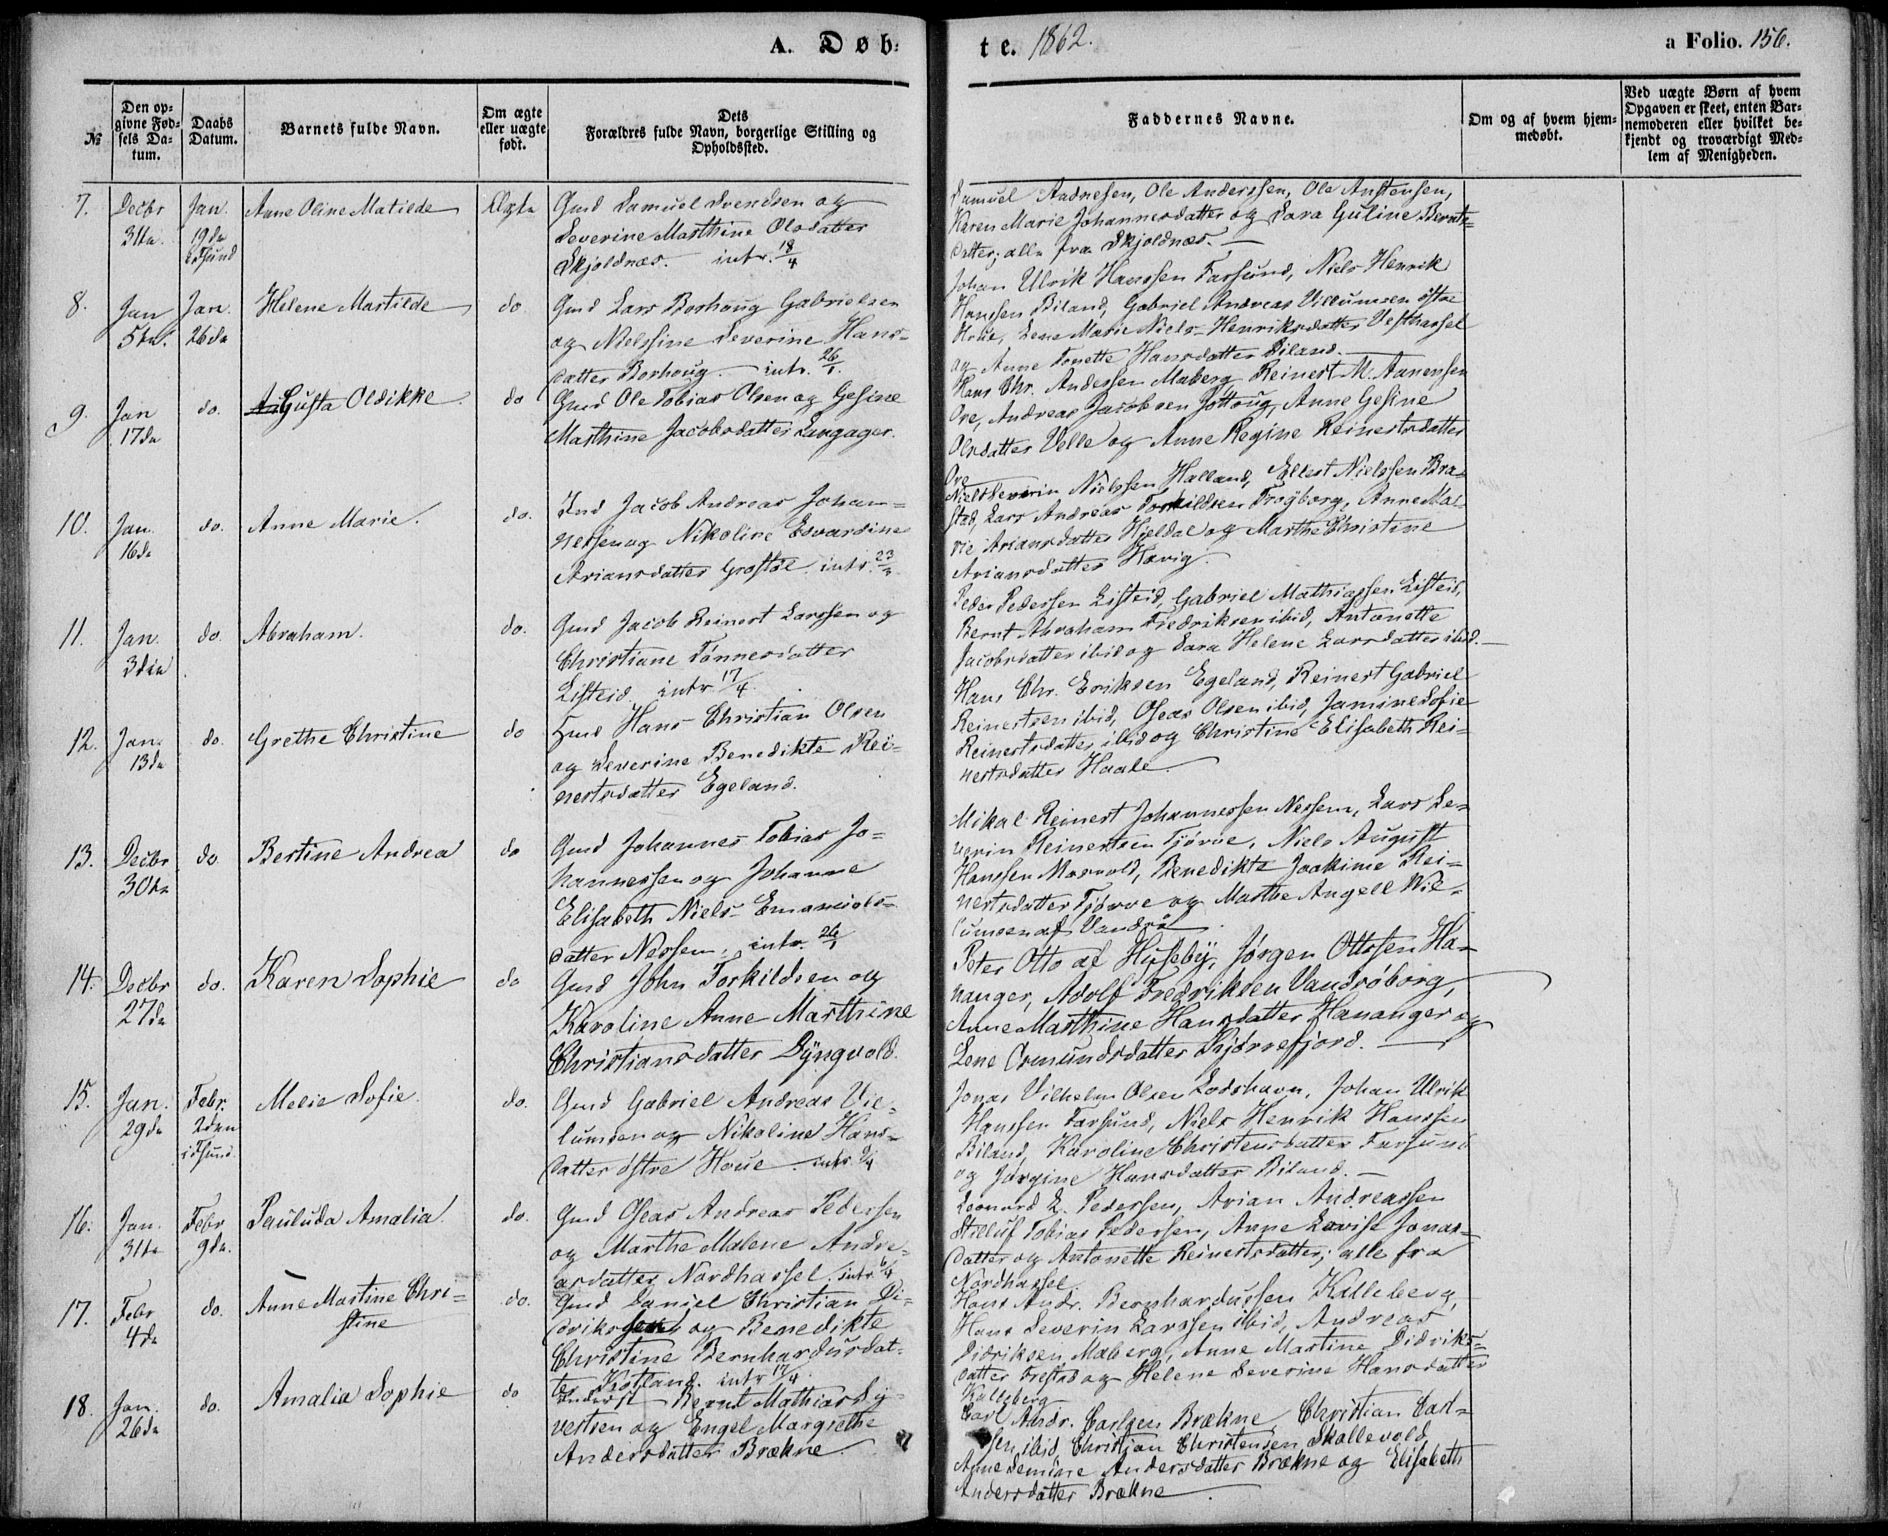 A. Døb=
te. 1862.
a Folio. 156.
№
Den op=
givne Fød=
sels Da=
tum.
Daabs
Datum.
Barnets fulde Navn.
Om ægte
eller uægte
født.
Dets
Forældres fulde Navn, borgerlige Stilling og
Opholdssted.
Faddernes Navne.
Om og af hvem hjem=
medøbt.
Ved uægte Børn af hvem
Opgaven er skeet, enten Bar=
nemoderen eller hvilket be=
kjendt og troværdigt Med=
lem af Menigheden.
7. Decbr 31te. Jan. 19de Anne Oline Matilde Ægte
Gmd Samuel Svendsen og
Severine Marthine Olsdatter
Skjoldnæs. intr. 18/4
Samuel Aadnesen, Ole Anderssen, Ole Anstensen,
Karen Marie Johannesdatter og Sara Guline Bernts=
datter; alle fra Skjoldnæs.
8. Jan 5te. Jan. 26de Helene Martilde do
Gmd Lars Borhoug Gabrielsen
og Nielssine Severine Hans=
datter Borhoug. intr. 26/1.
Johan Ulrik Hanssen Farsund, Niels Henrik
Hanssen Biland, Gabriel Andreas Villumsen østre
Houe, Lene Marie Niels-Henriksdatter Vesthassel
og Anne Tonette Hansdatter Biland.
9. Jan 17de do. Gusta Oldikke do
Gmd Ole Tobias Olsen og Gesine
Marthine Jacobsdatter Langager.
Hans Chr. Andersen Maberg, Reinert M. Aanensen
Ore, Andreas Jacobsen Jøttoug, Anne Gesine
Olsdatter Velle og Anne Regine Reinertsdatter
Ore
10. Jan. 16de do. Anne Marie. do.
Jacob Andreas Johan=
nessen og Nikoline Edvardine
Ariansdatter Grostøl. intr.
Niels Severin Nielssen Halland, Ellert Nielssen Bra=
stad, Lars Andreas Torkildsen Frøyborg, Anne Ma=
rie Ariansdatter Hjeldal og Marthe Christine
Ariansdatter Havig.
11. Jan. 3die do. Abraham. do.
Gmd Jacob Reinert Larssen og
Christiane Tønnesdatter
Listeid. intr. 17/4.
Peder Pederssen Listeid, Gabriel Mathiassen Listeid,
Bernt Abraham Fredriksen ibid, Antonette
Jacobsdatter ibid og Sara Helene Larsdatter ibid.
12. Jan. 13de do. Grethe Christine do
Gmd Hans Christian Olsen
og Severine Benedikte Rei=
nertsdatter Egeland.
Hans Chr. Eriksen Egeland, Reinert Gabriel
Reinertsen ibid, Oseas Olsen ibid, Jamine Sofie
Reinertsdatter ibid og Christine Elisabeth Rei=
nertsdatter Haale.
13. Decbr 30te do Bertine Andrea do
Gmd Johannes Tobias Jo=
hannessen og Johanne
Elisabeth Niels-Emanuels=
datter Nessem. intr. 26/1
Mikal Reinert Johannessen Nessem, Lars Se=
verin Reinertsen Tjørve, Niels August
Hanssen Marvold, Benedikte Joakime Rei=
nertsdatter Tjørve og Marthe Angell Wil=
lumsen af Vandrø.
14. Decbr 27de do. Karen Sophie do
Gmd John Torkildsen og
Karoline Anne Marthine
Christiansdatter Dyngvold.
Peter Otto af Huseby, Jørgen Ottosen Ha=
nanger, Adolf Fredriksen Vandrøborg,
Anne Marthine Hansdatter Hananger og
Lene Osmundsdatter Kjørrefjord.
15. Jan. 29de Febr. 2den Melie Sofie. do.
Gmd Gabriel Andreas Vil=
lumsen og Nikoline Hans=
datter østre Houe. intr.
Jonas Vilhelm Olsen Lodshavn, Johan Ulrik
Hanssen Farsund, Niels Henrik Hanssen
Biland, Karoline Christensdatter Farsund
og Jørgine Hansdatter Biland.
16. Jan. 31te Febr 9de. Pauluda Amalia. do.
Gmd Oseas Andreas Pedersen
og Marthe Malene Andre=
asdatter Nordhassel. intr.
Leonard L. Pedersen, Arian Andreassen
Stiluf Tobias Pedersen, Anne Lovise Jonas=
datter og Antonette Reinertsdatter; alle fra
Nordhassel
17. Febr 4de do. Anne Martine Chri=
stine do.
Gmd Daniel Christian Di=
driksen og Benedikte
Christine Bernhardusdat=
ter Kjotland. intr 17/4.
Hans Andr. Bernhardussen Kalleberg,
Hans Severin Larssen ibid, Andreas
Didriksen Maberg, Anne Martine Didriks=
datter og Helene Severine Hansdatter
Kalleberg
18. Jan. 26de do. Amalia Sophie do
Bernt Mathias Sy=
vertsen og Engel Margrethe
Andersdatter Brækne.
Carl Andr. Carlsen Brækne, Christian Carl=
sen ibid, Christian Christensen Skallevold,
Anne Semine Andersdatter Brækne og Elisabeth
Andersdatter Brækne